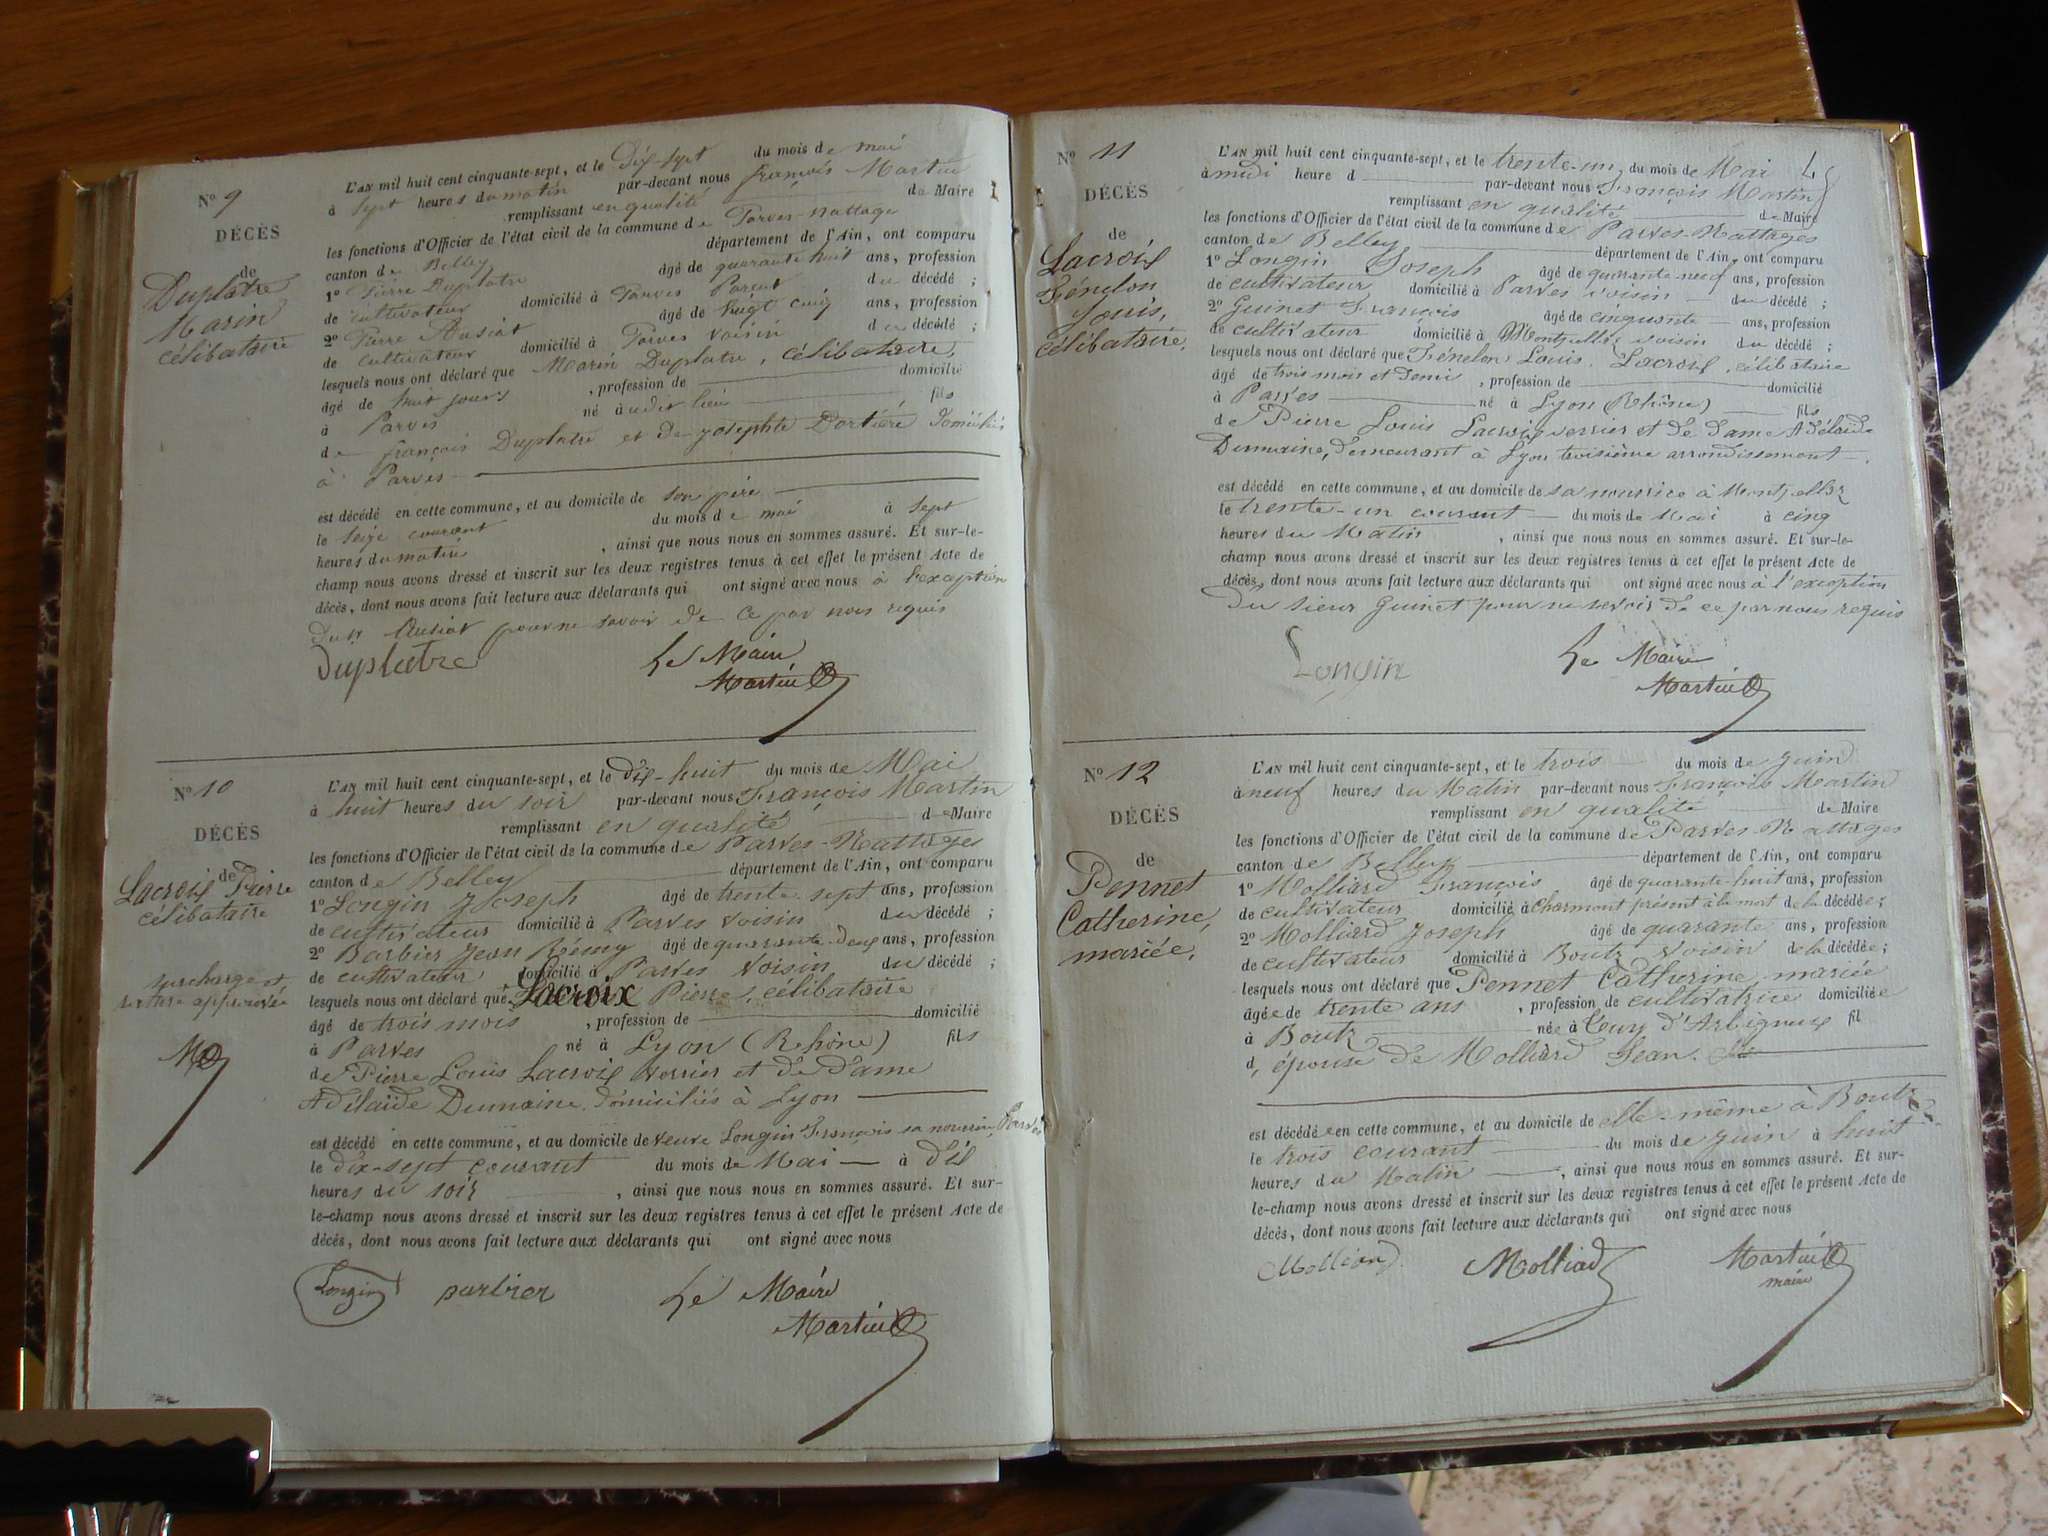 N° 9
DÉCÈS
de
Duplatre
Marin
célibataire
L'AN mil huit cent cinquante-sept, et le Dix-Sept du mois de mai
à sept heures du matin par-devant nous françois Martin
remplissant en qualité de Maire
les fonctions d'Officier de l'état civil de la commune de Parves-Nattage
canton de Belley département de l'Ain, ont comparu
1° Pierre Duplatre âgé de quarante huit ans, profession
de cultivateur domicilié à Parves Parent du décédé ;
2° Pierre âgé de vingt cinq ans, profession
de cultivateur domicilié à Parves voisin du décédé ;
lesquels nous ont déclaré que Marin Duplatre, célibataire,
âgé de huit jours , profession de domicilié
à Parves né audit lieu fils
de françois Duplatre et de josephte domiciliés
à Parves
est décédé en cette commune, et au domicile de son père
le seize courant du mois de mai à sept
heures du matin , ainsi que nous nous en sommes assuré. Et sur-le-
champ nous avons dressé et inscrit sur les deux registres tenus à cet effet le présent Acte de
décès, dont nous avons fait lecture aux déclarants qui ont signé avec nous à l'exception
du sr pour ne savoir de ce par nous requis
Duplatre Le Maire
Martin
N° 10
DÉCÈS
de
Lacroix Pierre
célibataire
surcharge et
rature approuvée
L'AN mil huit cent cinquante-sept, et le dix-huit du mois de Mai
à huit heures du soir par-devant nous François Martin
remplissant en qualité de Maire
les fonctions d'Officier de l'état civil de la commune de Parves-Nattages
canton de Belley département de l'Ain, ont comparu
1° Longin Joseph âgé de trente-sept ans, profession
de cultivateur domicilié à Parves voisin du décédé ;
2° Barbier Jean Rémy âgé de quarante-deux ans, profession
de cultivateur domicilié à Parves voisin du décédé ;
lesquels nous ont déclaré que Lacroix Pierre, célibataire
âgé de trois mois , profession de domicilié
à Parves né à Lyon (Rhône) fils
de Pierre Louis Lacroix verrier et de dame
Adélaïde Dumaine, domiciliés à Lyon
est décédé en cette commune, et au domicile de veuve Longin François sa nourrice, Parves
le dix-sept courant du mois de Mai à dix
heures du soir , ainsi que nous nous en sommes assuré. Et sur-
le-champ nous avons dressé et inscrit sur les deux registres tenus à cet effet le présent Acte de
décès, dont nous avons fait lecture aux déclarants qui ont signé avec nous
Longin barbier Le Maire
Martin
N° 11
DÉCÈS
de
Lacroix
Fénelon
Louis,
célibataire.
L'AN mil huit cent cinquante-sept, et le trente-un du mois de Mai
à midi heure d par-devant nous François Martin
remplissant en qualité de Maire
les fonctions d'Officier de l'état civil de la commune de Parves-Nattages
canton de Belley département de l'Ain, ont comparu
1° Longin Joseph âgé de quarante neuf ans, profession
de cultivateur domicilié à Parves voisin du décédé ;
2° Guinet François âgé de cinquante ans, profession
de cultivateur domicilié à Montpellaz voisin du décédé ;
lesquels nous ont déclaré que Fénelon Louis Lacroix, célibataire
âgé de trois mois et demi , profession de domicilié
à Parves né à Lyon (Rhône) fils
de Pierre Louis Lacroix verrier et de dame Adélaïde
Dumaine, demeurant à Lyon troisième arrondissement
est décédé en cette commune, et au domicile de sa nourrice à Montpellaz
le trente-un courant du mois de Mai à cinq
heures du Matin , ainsi que nous nous en sommes assuré. Et sur-le-
champ nous avons dressé et inscrit sur les deux registres tenus à cet effet le présent Acte de
décès, dont nous avons fait lecture aux déclarants qui ont signé avec nous à l'exception
du sieur Guinet pour ne savoir de ce par nous requis
Longin Le Maire
Martin
N° 12
DÉCÈS
de
Pennet
Catherine,
mariée.
L'AN mil huit cent cinquante-sept, et le trois du mois de juin
à neuf heures du Matin par-devant nous François Martin
remplissant en qualité de Maire
les fonctions d'Officier de l'état civil de la commune de Parves-Nattages
canton de Belley département de l'Ain, ont comparu
1° Molliard François âgé de quarante-huit ans, profession
de cultivateur domicilié à Charmont présent à la mort de la décédée ;
2° Molliard Joseph âgé de quarante ans, profession
de cultivateur domicilié à Boutz voisin de la décédée ;
lesquels nous ont déclaré que Pennet Catherine mariée
âgée de trente ans , profession de cultivatrice domiciliée
à Boutz née à d'Arbignieux fil
d, épouse de Molliard Jean.
est décédée en cette commune, et au domicile de elle-même à Boutz
le trois courant du mois de juin à huit
heures du Matin , ainsi que nous nous en sommes assuré. Et sur-
le-champ nous avons dressé et inscrit sur les deux registres tenus à cet effet le présent Acte de
décès, dont nous avons fait lecture aux déclarants qui ont signé avec nous
Molliard Molliard Martin
maire